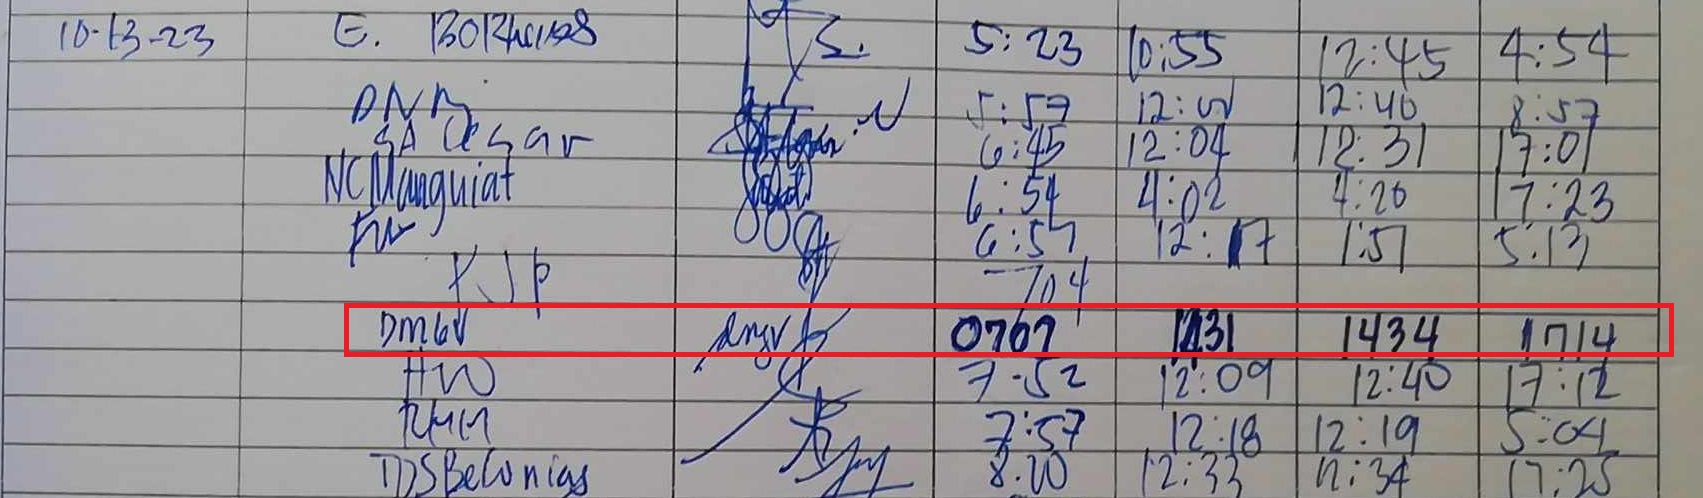 10-13-23 E. 5:23 10:55 12:45 4:54
DNM 5:57 12:01 12:46 8:57
SA Cesar 6:45 12:04 12:31 17:01
NCManguiat 6:54 4:02 4:20 17:23
6:57 12:17 1:51 5:13
KJP 704
DMGV dmgv 0707 1434 1714
HW 7-52 12:09 12:40 17:12
RMM 7:57 12:18 12:19 5:04
TDSBelonias 8:20 12:33 12:34 17:25